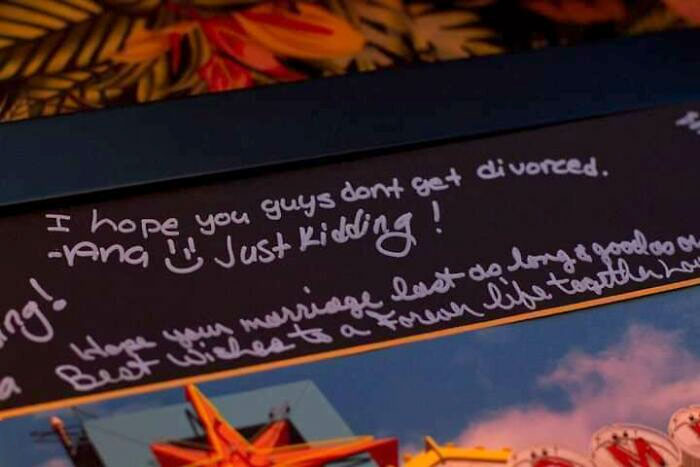 I hope you guys dont get divorced.
-Ana Just Kidding!
ng!
Hope your marriage last as long & good as
a Best wishes to a Forever life together